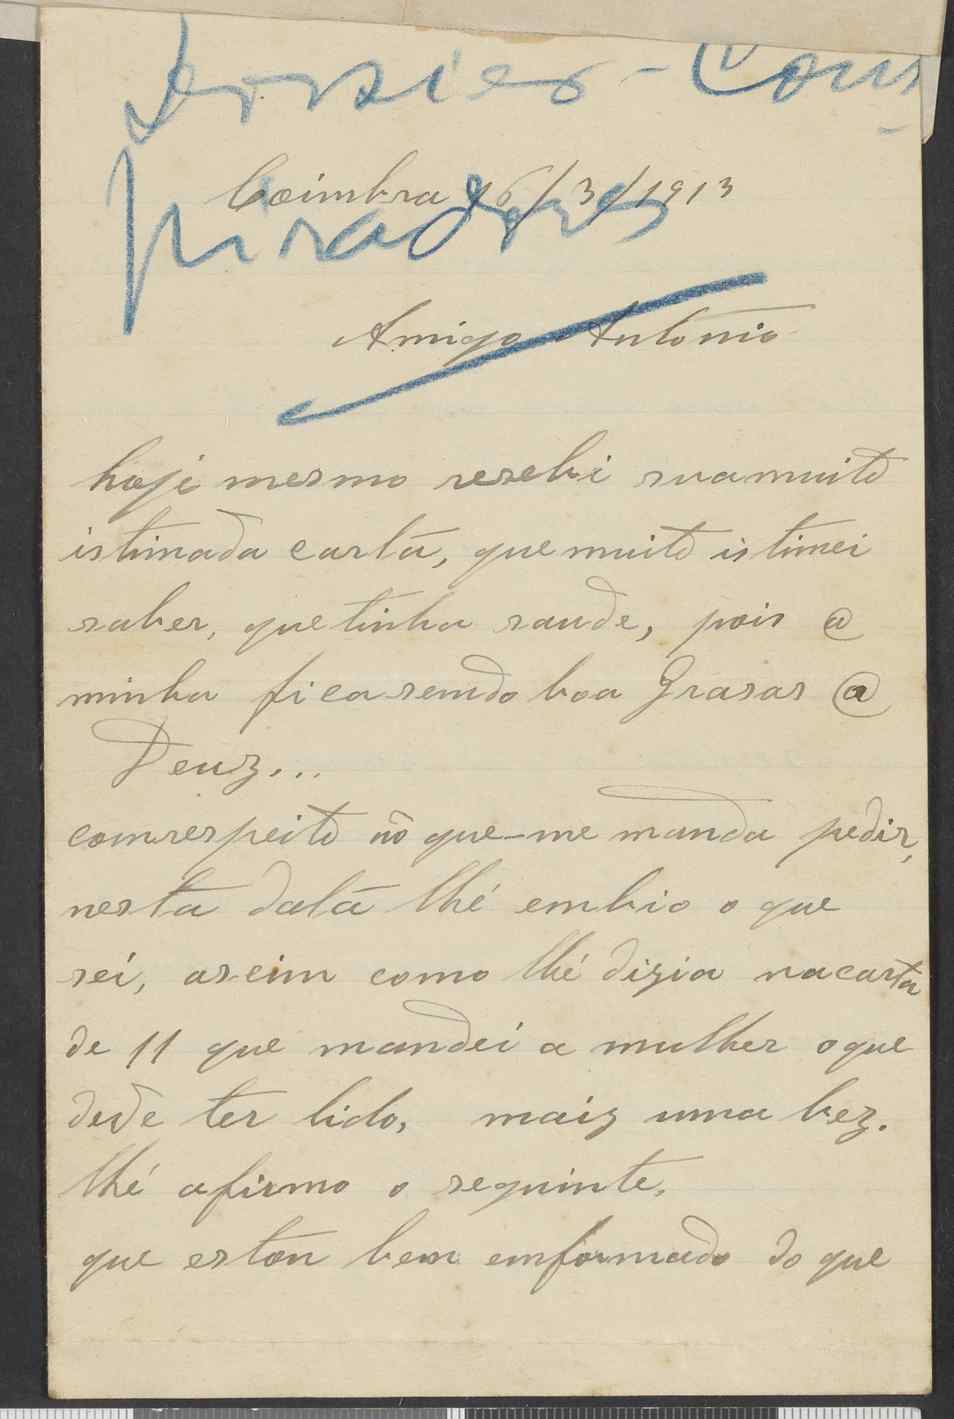 Dossier - Cons
Coimbra 16/3/1913
piradores
Amigo Antonio
hoje mesmo resebi sua muito
istimada carta, que muito istimei
saber, que tinha saude, pois a
minha fica sendo boa Grasas a
Deuz...
com respeito ao que-me manda pedir,
nesta data lhé embio o que
sei, aseim como lhé dizia na carta
de 11 que mandei a mulher o que
deve ter lido, maiz uma bez.
lhé afirmo o seguinte,
que estou bem emformado do que